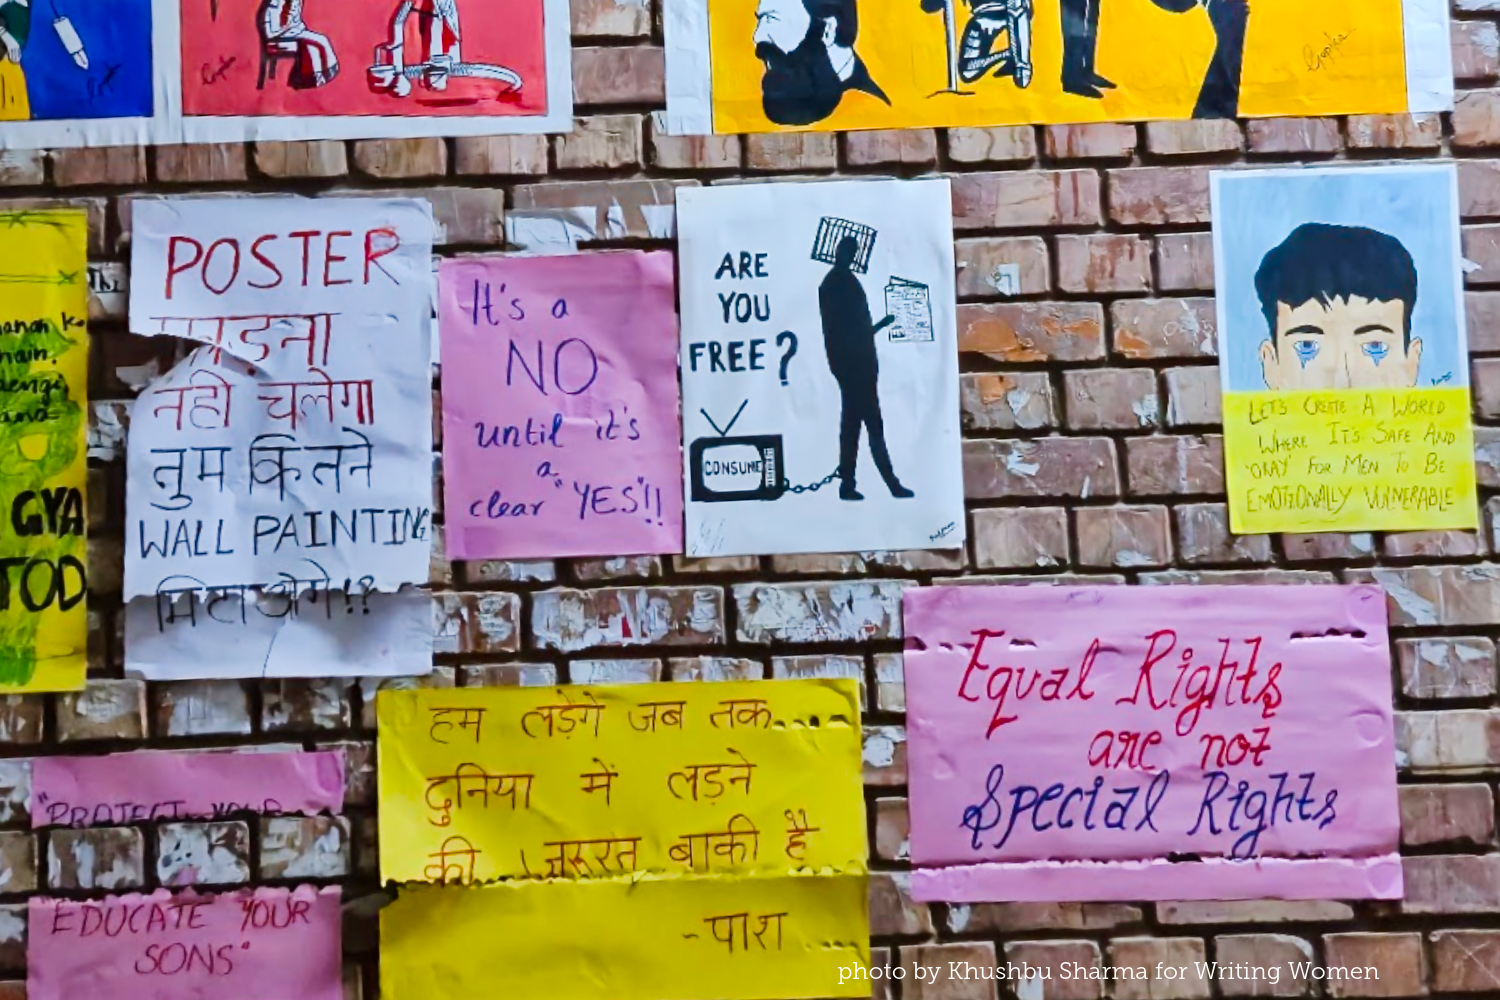 GYA
TOD
POSTER
नही चलेगा
तुम कितने
WALL PAINTING
मिटाओगे!?
It's a
NO
until it's
a
clear "YES"!!
ARE
YOU
FREE?
CONSUME
LET'S CREATE A WORLD
WHERE ITS SAFE AND
'OKAY' FOR MEN TO BE
EMOTIONALLY VULNERABLE
Equal Rights
are not
Special Rights
हम लड़ेंगे जब तक....
दुनिया में लड़ने
की जरूरत बाकी है
- पाश ....
"EDUCATE YOUR
SONS"
photo by Khushbu Sharma for Writing Women